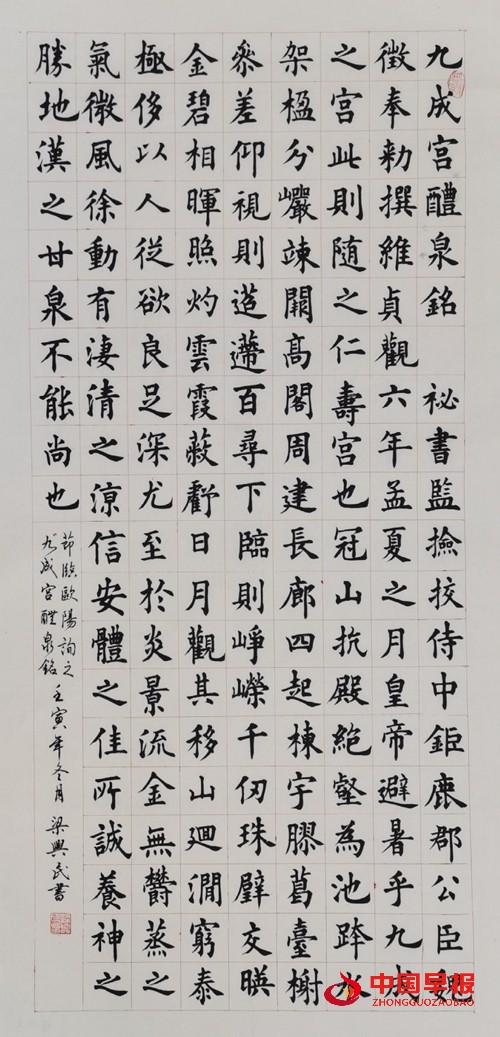 九成宫醴泉銘 祕書監撿挍侍中鉅鹿郡公臣魏
徵奉勅撰維貞觀六年孟夏之月皇帝避暑乎九成
之宫此則隨之仁壽宫也冠山抗殿絶壑為池跨水
架楹分巖竦闕高閣周建長廊四起棟宇膠葛臺榭
叅差仰視則迢遰百尋下臨則崢嶸千仞珠璧交暎
金碧相暉照灼雲霞蔽虧日月觀其移山迴澗窮泰
極侈以人從欲良足深尤至於炎景流金無欝蒸之
氣微風徐動有淒清之凉信安體之佳所誠養神之
勝地漢之甘泉不能尚也
節臨歐陽詢之
九成宫醴泉銘 壬寅年冬月 梁興民書
中国早报
ZHONGGUOZAOBAO